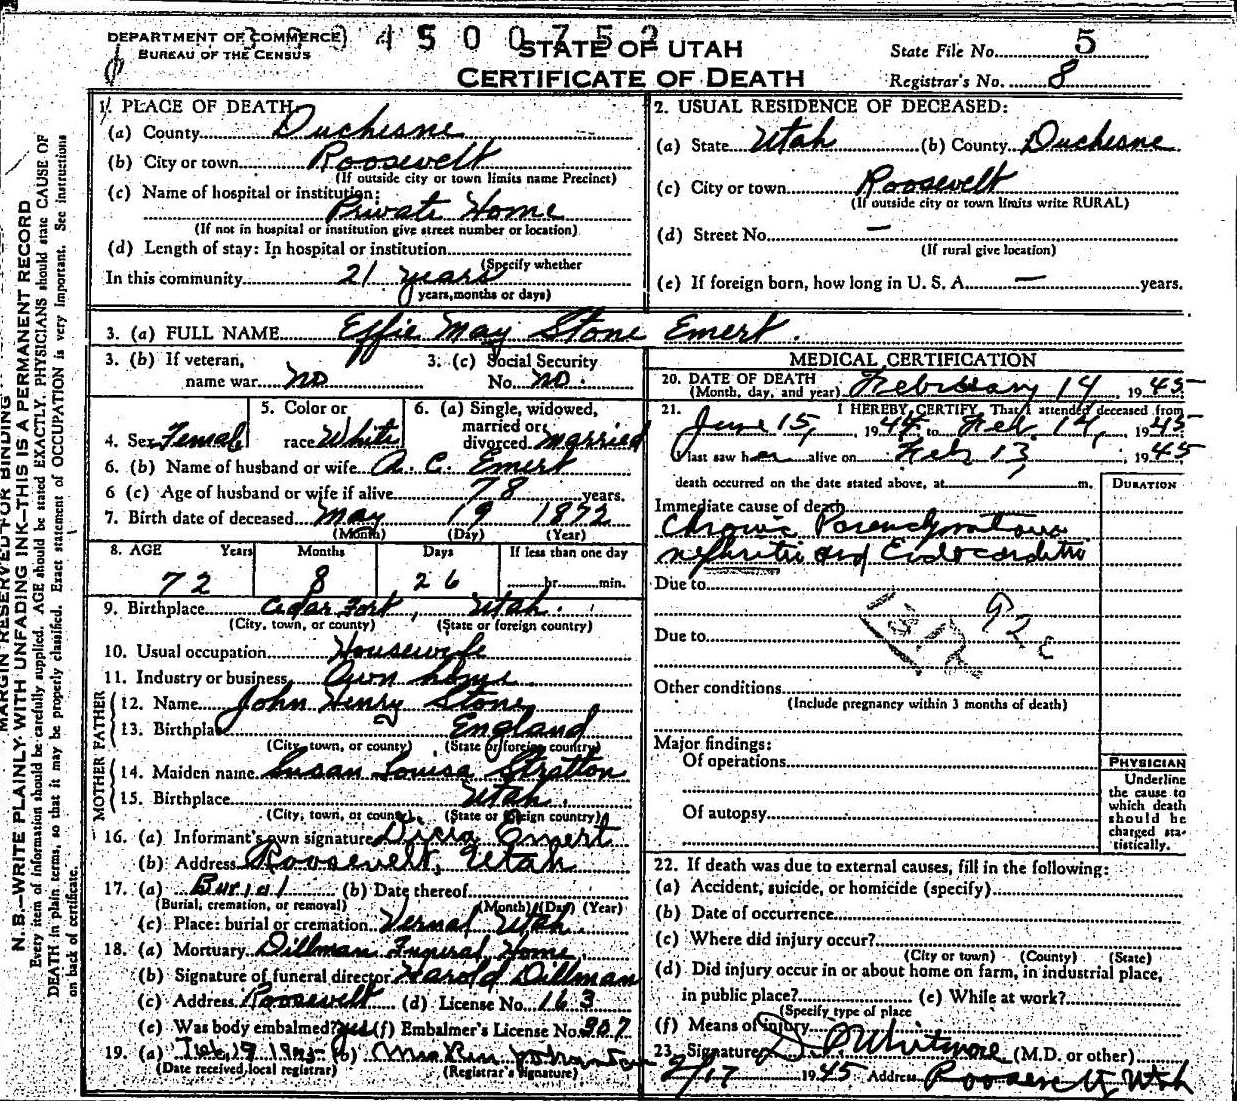 DEPARTMENT OF COMMERCE
BUREAU OF THE CENSUS
4500752
STATE OF UTAH
CERTIFICATE OF DEATH
State File No. 5
Registrar's No. 8
MARGIN RESERVED FOR BINDING
N. B.—WRITE PLAINLY WITH UNFADING INK—THIS IS A PERMANENT RECORD
Every item of information should be carefully supplied. AGE should be stated EXACTLY. PHYSICIANS should state CAUSE OF
DEATH in plain terms, so that it may be properly classified. Exact statement of OCCUPATION is very important. See instructions
on back of certificate.
1. PLACE OF DEATH
(a) County Duchesne
(b) City or town Roosevelt
(If outside city or town limits name Precinct)
(c) Name of hospital or institution:
Private Home
(If not in hospital or institution give street number or location)
(d) Length of stay: In hospital or institution
(Specify whether
In this community 21 years
years, months or days)
2. USUAL RESIDENCE OF DECEASED:
(a) State Utah (b) County Duchesne
(c) City or town Roosevelt
(If outside city or town limits write RURAL)
(d) Street No. —
(If rural give location)
(e) If foreign born, how long in U. S. A. — years.
3. (a) FULL NAME Effie May Stone Emert.
3. (b) If veteran,
name war no
3. (c) Social Security
No. no.
4. Sex Female
5. Color or
race White
6. (a) Single, widowed,
married or
divorced married
6. (b) Name of husband or wife A. C. Emert
6 (c) Age of husband or wife if alive 78 years.
7. Birth date of deceased May 19 1872
(Month) (Day) (Year)
8. AGE Years Months Days If less than one day
72 8 26 hr. min.
9. Birthplace Cedar Fort, Utah.
(City, town, or county) (State or foreign country)
10. Usual occupation Housewife
11. Industry or business Own home.
FATHER
12. Name John Henry Stone
13. Birthplace England
(City, town, or county) (State or foreign country)
MOTHER
14. Maiden name Susan Louisa Stratton
15. Birthplace Utah.
(City, town, or county) (State or foreign country)
16. (a) Informant's own signature Emert
(b) Address Roosevelt, Utah
17. (a) Burial (b) Date thereof
(Burial, cremation, or removal) (Month) (Day) (Year)
(c) Place: burial or cremation Vernal Utah
18. (a) Mortuary Dillman Funeral Home
(b) Signature of funeral director Harold Dillman
(c) Address Roosevelt (d) License No. 163
(e) Was body embalmed? yes (f) Embalmer's License No. 307
19. (a) Feb 19 1945 (b) Mrs
(Date received local registrar) (Registrar's signature)
MEDICAL CERTIFICATION
20. DATE OF DEATH
(Month, day, and year) February 14 1945
21. I HEREBY CERTIFY, That I attended deceased from
June 15, 1944 to Feb. 14, 1945
I last saw her alive on Feb 13, 1945
death occurred on the date stated above, at m.
DURATION
Immediate cause of death
Chronic Parenchymatous
nephritis and Endocarditis
Due to
92c
Due to
Other conditions
(Include pregnancy within 3 months of death)
Major findings:
Of operations
Of autopsy
PHYSICIAN
Underline
the cause to
which death
should be
charged sta-
tistically.
22. If death was due to external causes, fill in the following:
(a) Accident, suicide, or homicide (specify)
(b) Date of occurrence
(c) Where did injury occur?
(City or town) (County) (State)
(d) Did injury occur in or about home on farm, in industrial place,
in public place? (e) While at work?
(Specify type of place
(f) Means of injury
23. Signature Whitmore (M.D. or other)
2/17 1945 Address Roosevelt, Utah